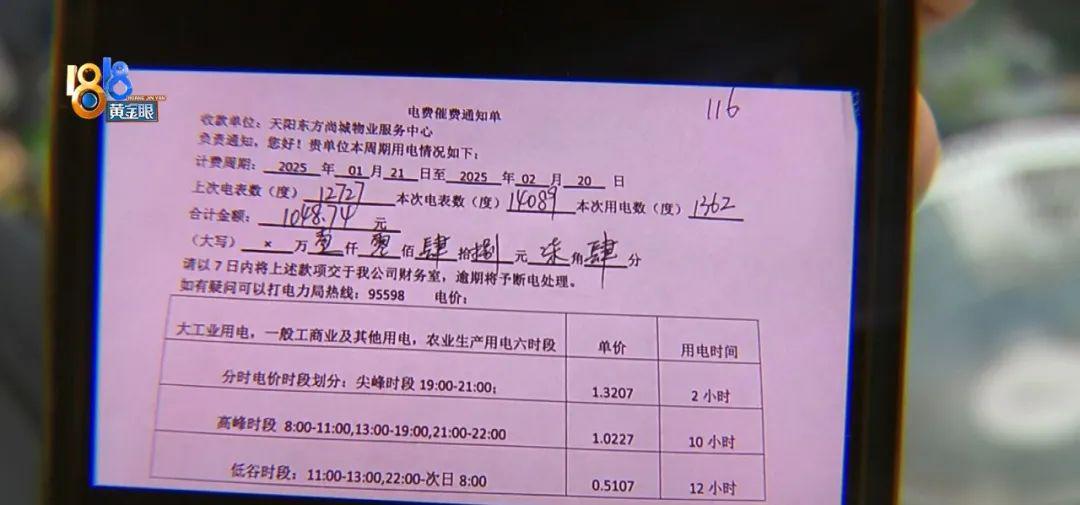 1818
HUANG JIN YAN
黄金眼
116
电费催费通知单
收款单位：天阳东方尚城物业服务中心
负责通知，您好！贵单位本周期用电情况如下：
计费周期：2025 年 01 月 21 日至 2025 年 02 月 20 日
上次电表数（度）12727 本次电表数（度）14089 本次用电数（度）1362
合计金额：1048.74 元
（大写）× 万 壹 仟 零 佰 肆 拾 捌 元 柒 角 肆 分
请以 7 日内将上述款项交于我公司财务室，逾期将予断电处理。
如有疑问可以打电力局热线：95598 电价：
大工业用电，一般工商业及其他用电，农业生产用电六时段 单价 用电时间
分时电价时段划分：尖峰时段 19:00-21:00; 1.3207 2 小时
高峰时段 8:00-11:00,13:00-19:00,21:00-22:00 1.0227 10 小时
低谷时段：11:00-13:00,22:00-次日 8:00 0.5107 12 小时